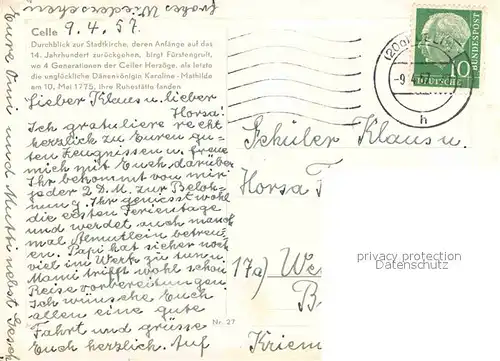 frohes Wiedersehen
9. 4. 57.
Celle
Durchblick zur Stadtkirche, deren Anfänge auf das
14. Jahrhundert zurückgehen, birgt Fürstengruft,
wo 4 Generationen der Celler Herzöge, als letzte
die unglückliche Dänenkönigin Karoline-Mathilde
am 10. Mai 1775, ihre Ruhestätte fanden
Lieber Klaus u. lieber
Horsa!
Ich gratuliere recht
herzlich zu Euren gu-
ten Zeugnissen u. freue
mich mit Euch darüber
Ihr bekommt von mir
jeder 2 D.M. zur Beloh-
nung. Ihr genießt wohl
die ersten Ferientage
und werdet auch manch
mal Almutlein betreu-
en. Papi hat sicher noch
viel im Werk zu tun u.
Mami trifft wohl schon
Reisevorbereitungen.
Ich wünsche Euch
allen eine gute
Fahrt und grüsse
Euch herzlich. Auf
Eure Omi und Mutti nebst Gesch
Nr. 27
(20a) CELLE
-9.4.57
h
DEUTSCHE BUNDESPOST
10
Schüler Klaus u.
Horsa T
17a) We
B
Kriem
privacy protection
Datenschutz